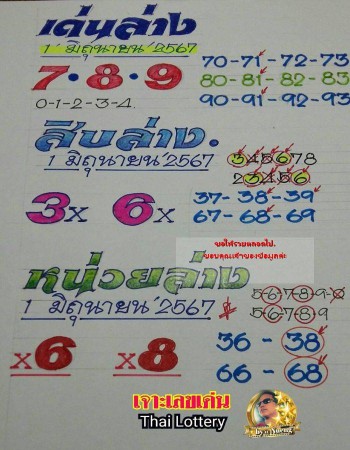 เด่นล่าง
1 มิถุนายน 2567
7·8·9
0-1-2-3-4.
70-71-72-73
80-81-82-83
90-91-92-93
สิบล่าง.
1 มิถุนายน 2567
345678
23456
3x 6x
37-38-39
67-68-69
ขอให้รวยตลอดไป.
หน่วยล่าง
1 มิถุนายน 2567
5-6-7-8-9-0
5-6-7-8-9
x6 x8
36 - 38
66 - 68
เจาะเลขเด่น
Thai Lottery